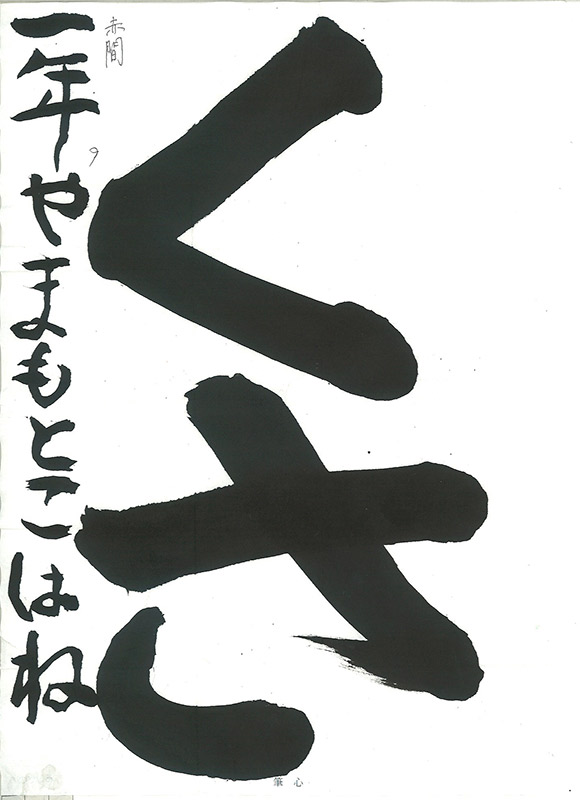 くさ
一年やまもとこはね
赤間
筆心